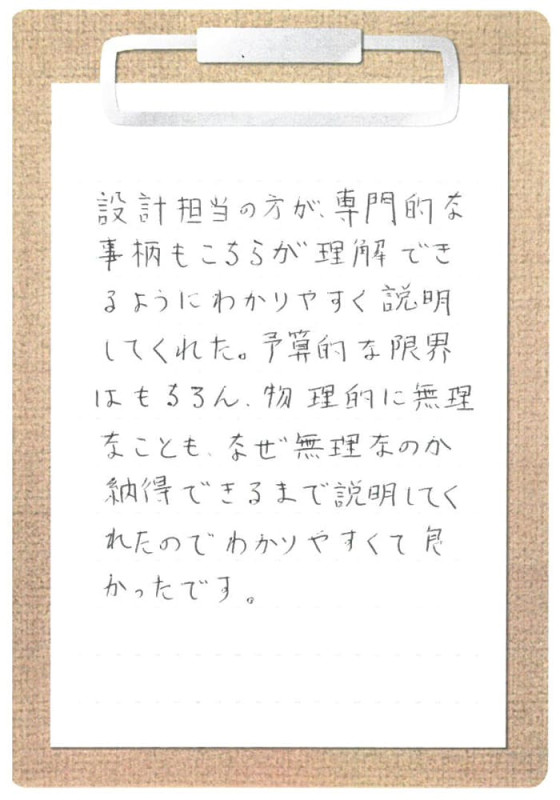 設計担当の方が、専門的な
事柄もこちらが理解でき
るようにわかりやすく説明
してくれた。予算的な限界
はもちろん、物理的に無理
なことも、なぜ無理なのか
納得できるまで説明してく
れたのでわかりやすくて良
かったです。